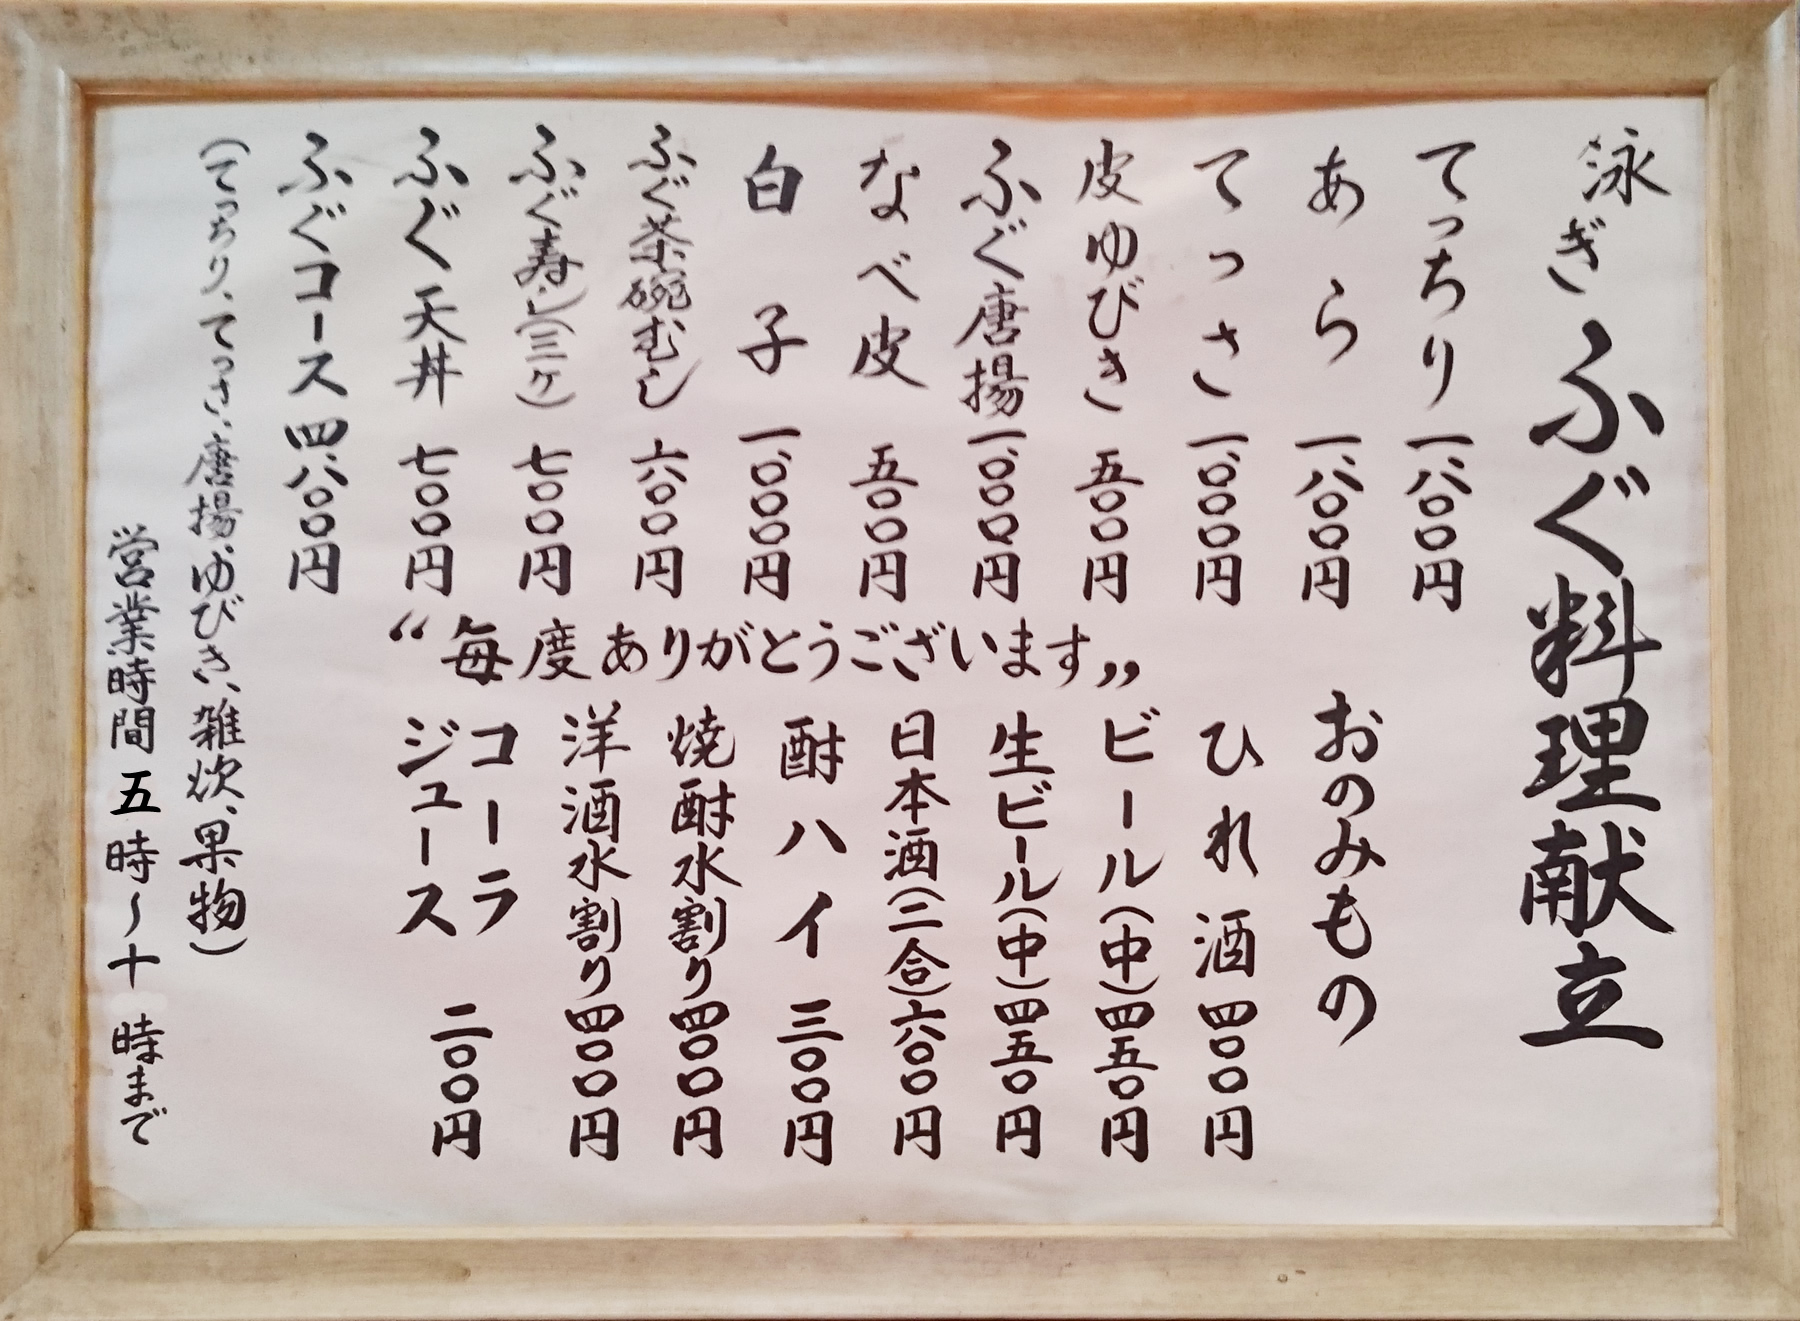 泳ぎふぐ料理献立
てっちり 一、八〇〇円
あら 一、八〇〇円
てっさ 一、〇〇〇円
皮ゆびき 五〇〇円
ふぐ唐揚 一、〇〇〇円
なべ皮 五〇〇円
白子 一、〇〇〇円
ふぐ茶碗むし 六〇〇円
ふぐ寿し(三ヶ) 七〇〇円
ふぐ天丼 七〇〇円
ふぐコース 四、八〇〇円
(てっちり、てっさ、唐揚、ゆびき、雑炊、果物)
“毎度ありがとうございます”
おのみもの
ひれ酒 四〇〇円
ビール(中) 四五〇円
生ビール(中) 四五〇円
日本酒(二合) 六〇〇円
酎ハイ 三〇〇円
焼酎水割り 四〇〇円
洋酒水割り 四〇〇円
コーラ
ジュース 二〇〇円
営業時間 五時〜十時まで